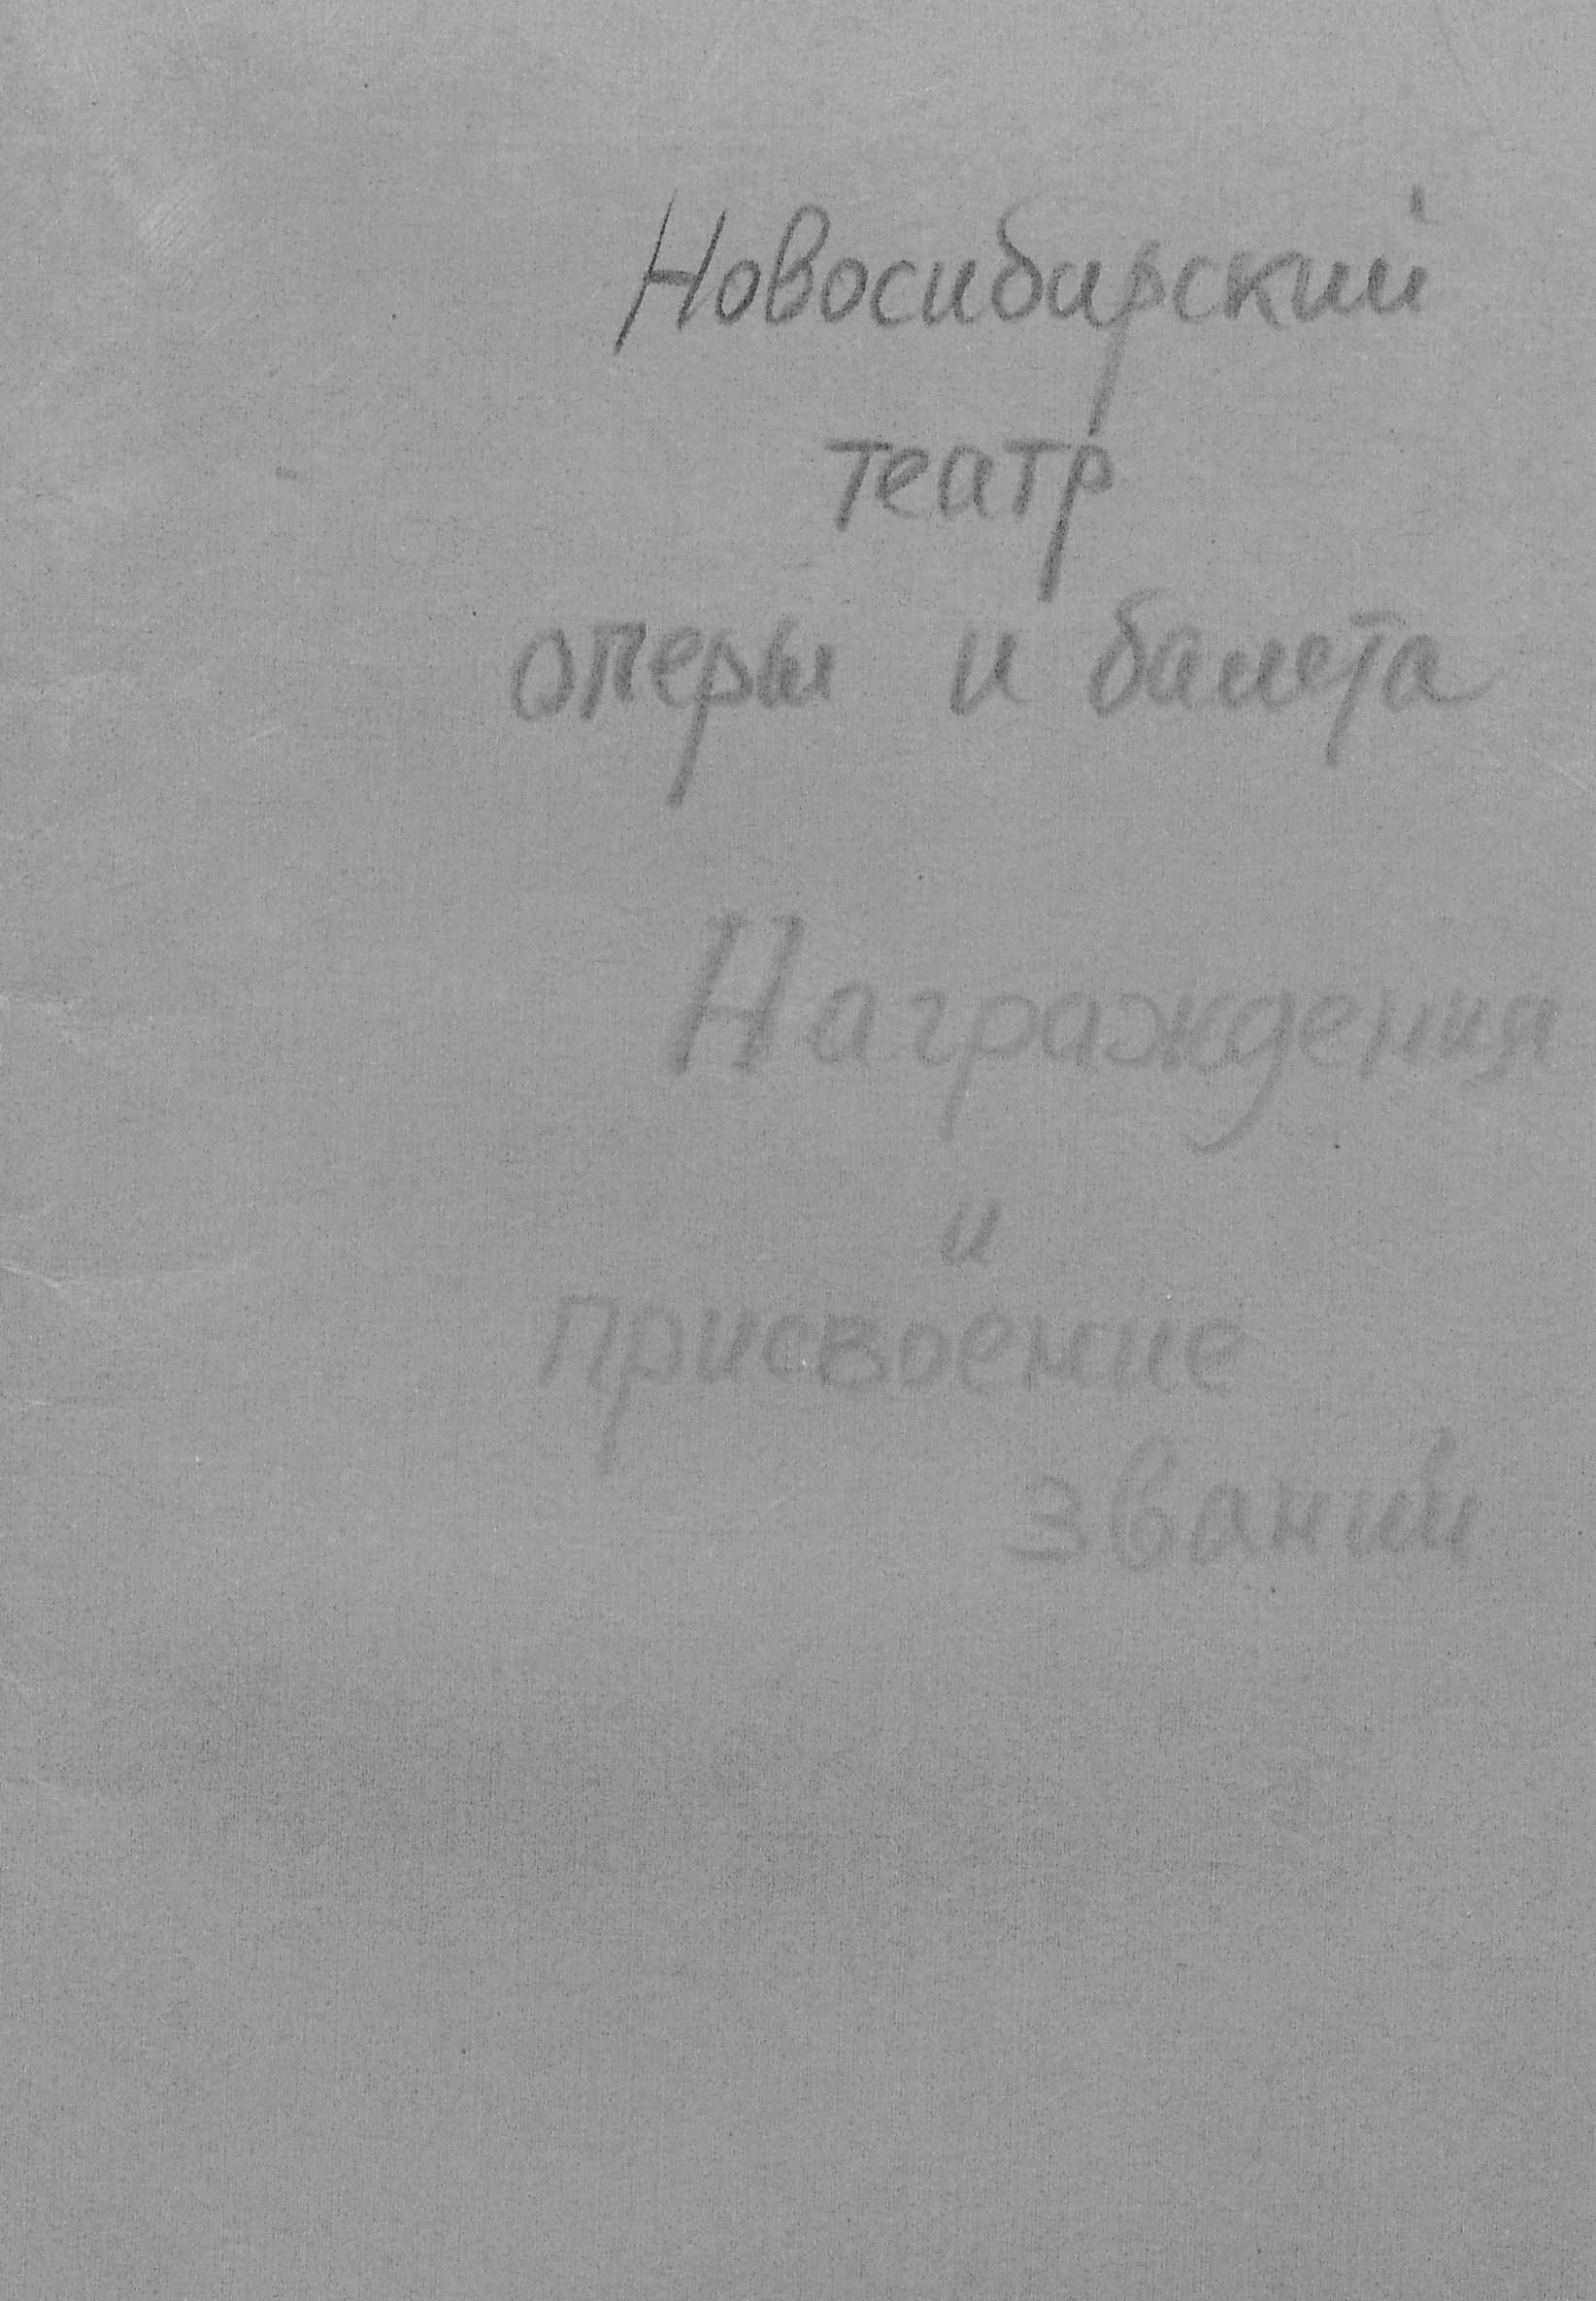 Новосибирский
театр
оперы и балета
Награждения
и
присвоение
званий